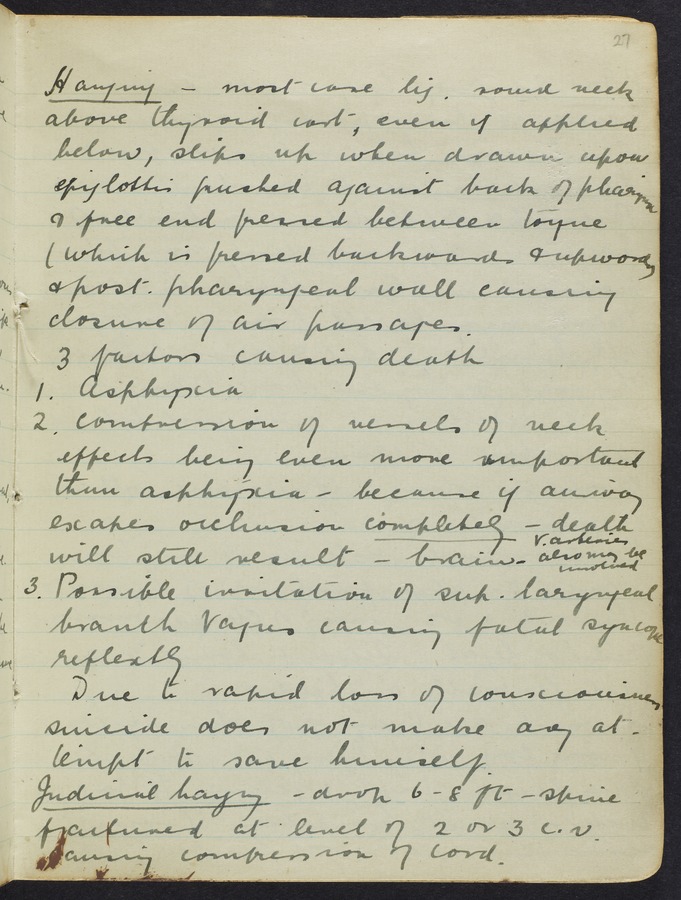 27
Hanging – most case lig. round neck
above thyroid cart, even if applied
below, slips up when drawn upon
epiglottis pushed against back of pharynx
& free end pressed between tongue
(which is pressed backwards & upwards
& post. pharyngeal wall causing
closure of air passages.
3 factors causing death
1. Asphyxia
2. compression of vessels of neck
effects being even more important
than asphyxia – because if airway
escapes occlusion completely – death
will still result – brain – v. arteries
also may be
involved
3. Possible irritation of sup. laryngeal
branch Vagus causing fatal syncope
reflexly
Due to rapid loss of consciousness
suicide does not make any at-
tempt to save himself
Judicial hanging – drop 6-8 ft – spine
fractured at level of 2 or 3 c.v.
causing compression of cord.